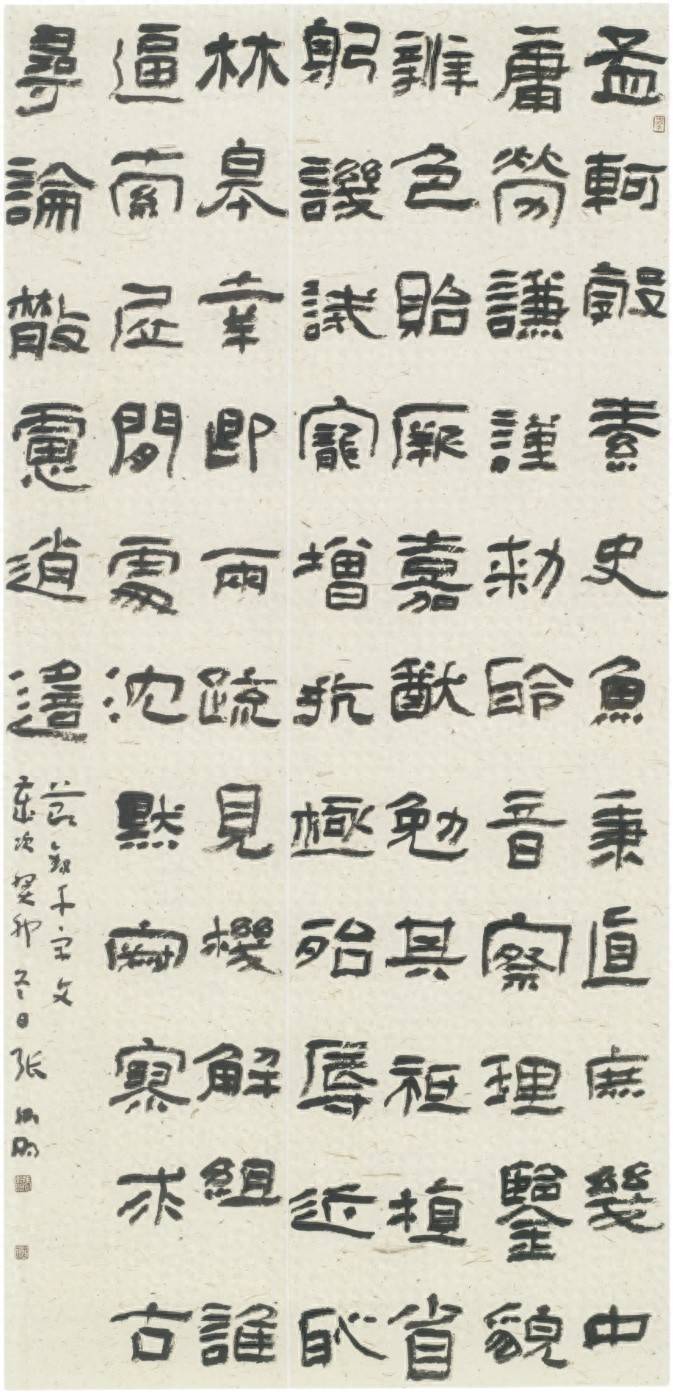 孟軻敦素史魚秉直庶幾中
庸勞謙謹勑聆音察理鑒貌
辨色貽厥嘉猷勉其祗植省
躬譏誡寵增抗極殆辱近恥
林皋幸即兩疏見機解組誰
逼索居閒處沈默寂寥求古
尋論散慮逍遙
節錄千字文
歲次癸卯冬日張